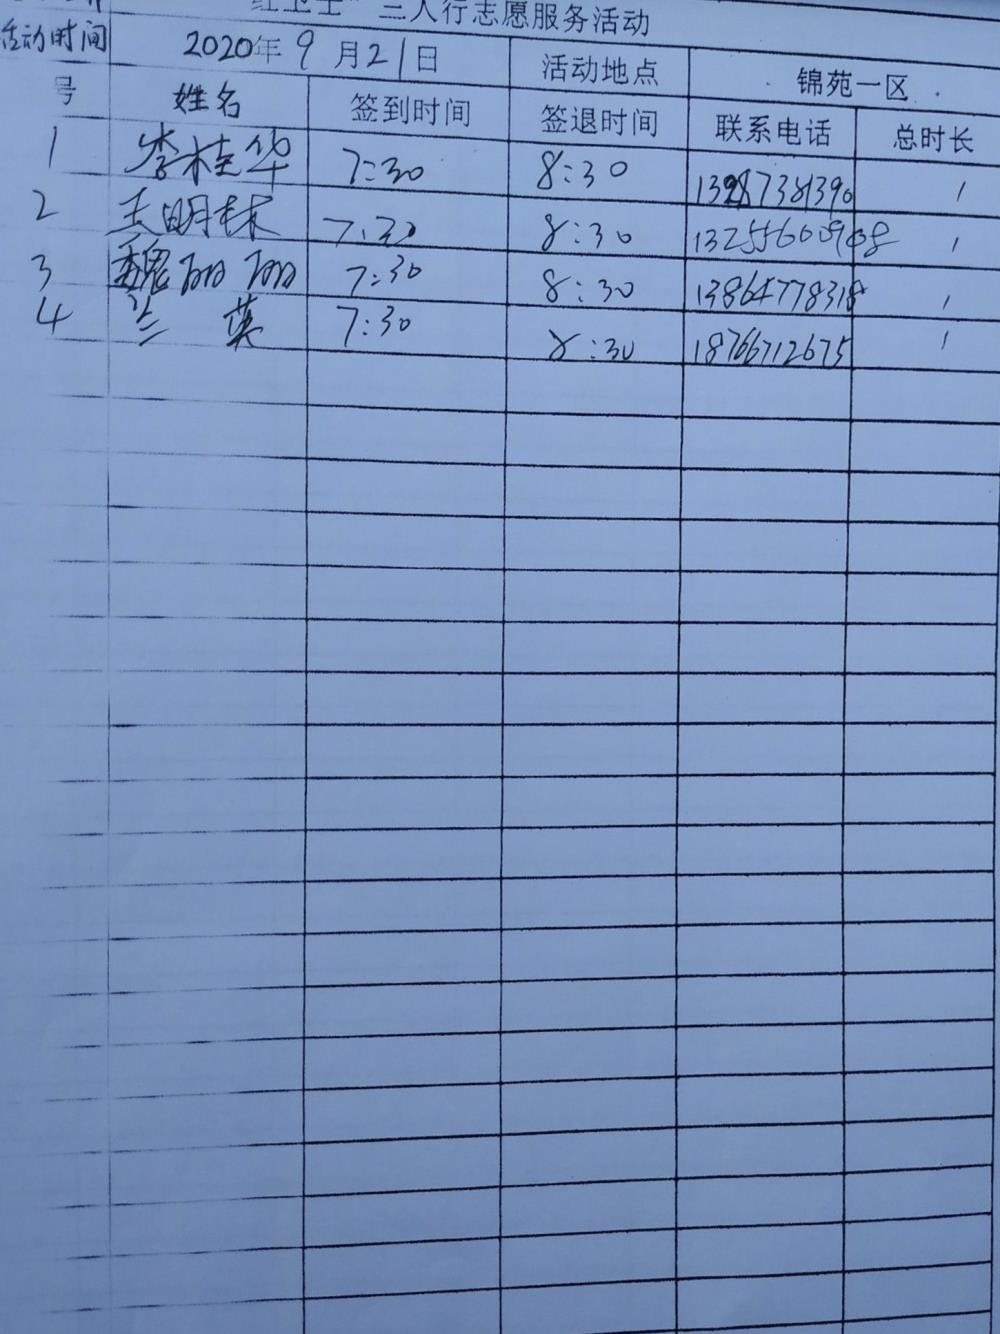 红卫士”三人行志愿服务活动
活动时间 2020年9月21日 活动地点 锦苑一区
号 姓名 签到时间 签退时间 联系电话 总时长
1 李桂华 7:30 8:30 1 
2 王明林 7:30 8:30 1
3 魏丽丽 7:30 8:30 13864778318 1
4 兰英 7:30 8:30 18766712675 1